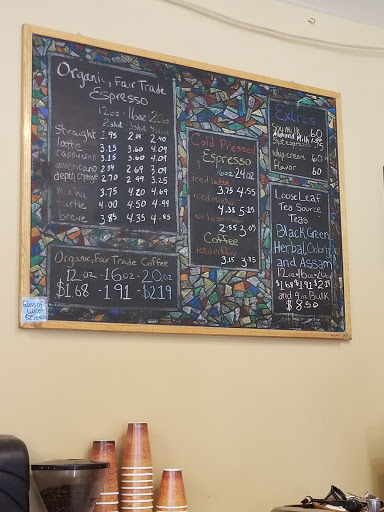 Organic, Fair Trade
Espresso
12oz 16oz 20oz
straight 1.95 2.40
latte 3.15 3.60 4.09
cappucino 3.15 3.60 4.09
americano 2.69 3.09
depth charge 2.70 2.99 3.25
mocha 3.75 4.20 4.69
turtle 4.00 4.50 4.99
breve 3.85 4.35 4.85
Organic, Fair Trade Coffee
12oz - 16oz - 20oz
$1.68 - 1.91 - $2.19
Cold Pressed
Espresso
16oz 24oz
iced latte
3.75 4.55
iced mocha
4.35 5.15
iced americano
2.55 3.09
Coffee
iced coffee
3.15 3.75
Extras
Soy Milk .60
Almond Milk
whip cream .60
Flavor .60
Loose Leaf
Tea Source
Teas
Black, Green,
Herbal, Oolong
and Assam
12oz 16oz 20oz
$1.68 $1.91 $2.19
and 4oz Bulk
$8.50
Glass of
Water